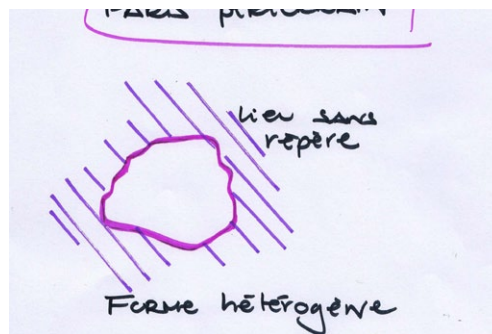 PARIS
Lieu sans
répère
Forme hétérogène